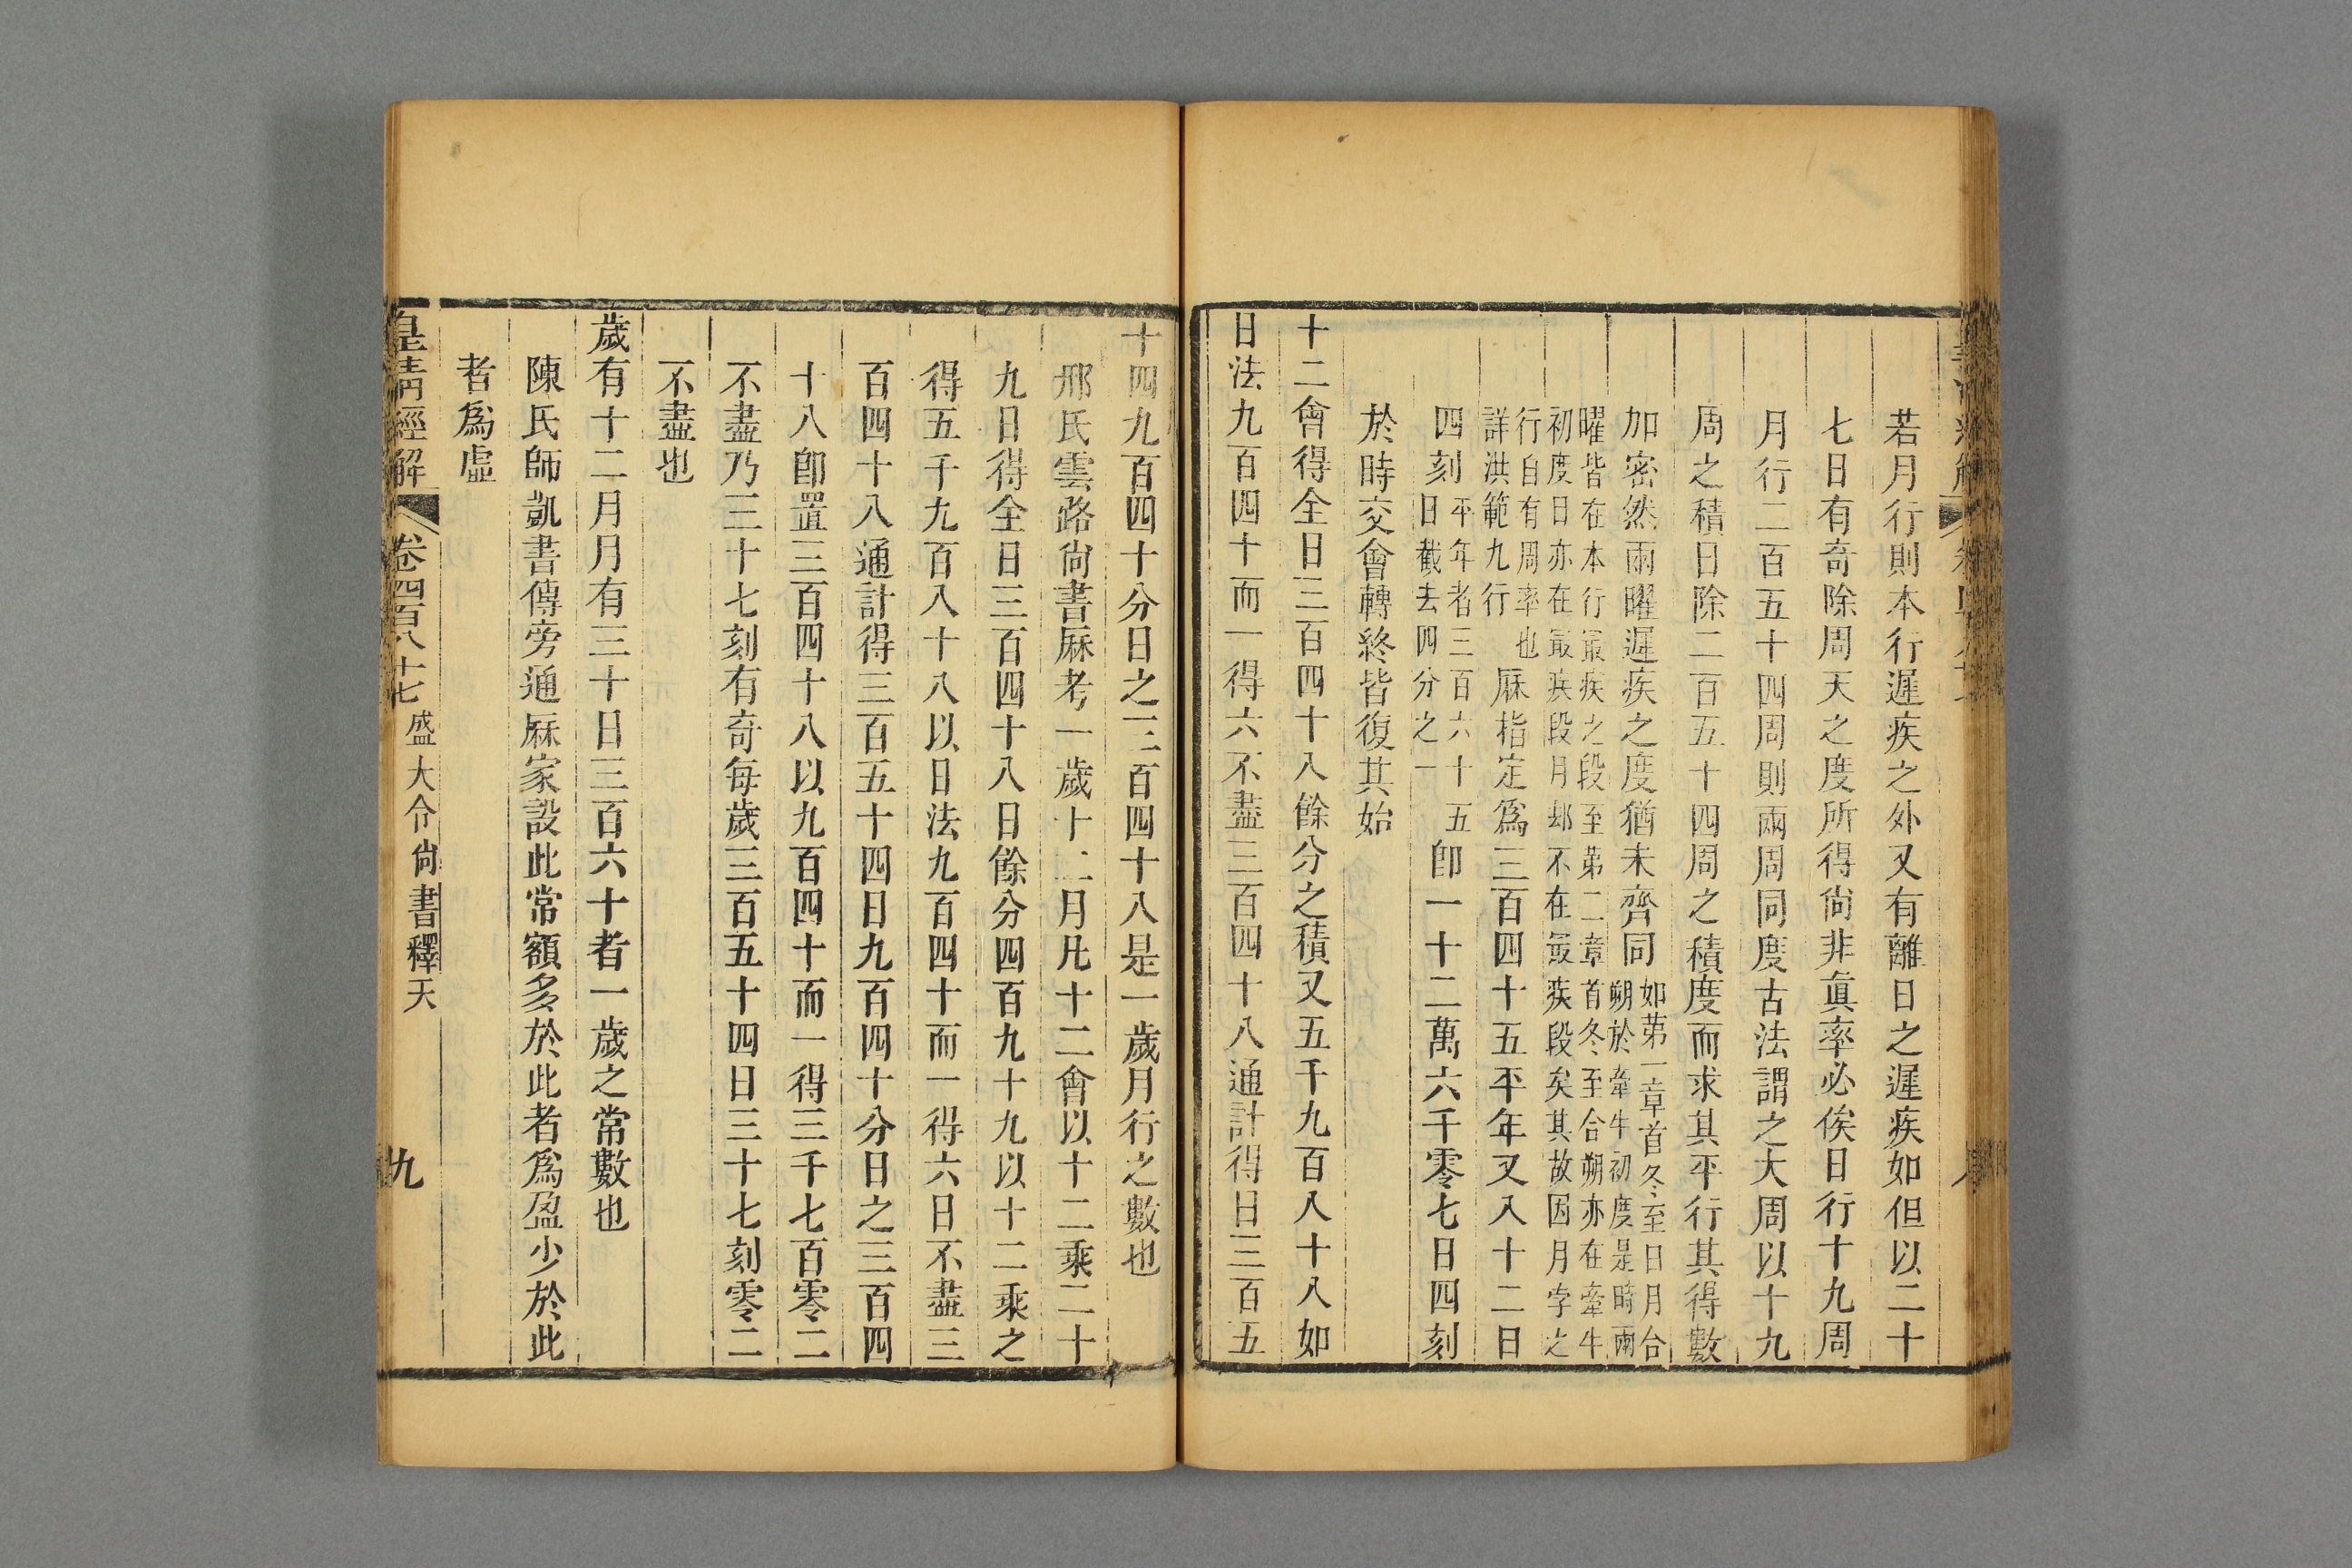 若月行則本行遲疾之外又有離日之遲疾如但以二十
七日有奇除周天之度所得尙非眞率必俟日行十九周
月行二百五十四周則兩周同度古法謂之大周以十九
周之積日除二百五十四周之積度而求其平行其得數
加密然兩曜遲疾之度猶未齊同如苐一章首冬至日月合
朔於牽牛初度是時兩
曜皆在本行最疾之段至苐二章首冬至合朔亦在牽牛
初度日亦在最疾段月却不在最疾段矣其故因月孛之
行自有周率也
詳洪範九行
厤指定爲三百四十五平年又八十二日
四刻平年者三百六十五
日截去四分之一
卽一十二萬六千零七日四刻
於時交會轉終皆復其始
十二會得全日三百四十八餘分之積又五千九百八十八如
日法九百四十而一得六不盡三百四十八通計得日三百五
十四九百四十分日之三百四十八是一歲月行之數也
邢氏雲路尙書厤考一歲十二月凡十二會以十二乘二十
九日得全日三百四十八日餘分四百九十九以十二乘之
得五千九百八十八以日法九百四十而一得六日不盡三
百四十八通計得三百五十四日九百四十分日之三百四
十八卽置三百四十八以九百四十而一得三千七百零二
不盡乃三十七刻有奇每歲三百五十四日三十七刻零二
不盡也
歲有十二月月有三十日三百六十者一歲之常數也
陳氏師凱書傳旁通厤家設此常額多於此者爲盈少於此
者爲虛
皇淸經解
卷四百八十七
盛大令尙書釋天
九